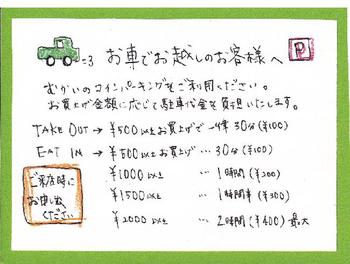 お車でお越しのお客様へ P
むかいのコインパーキングをご利用ください。
お買上げ金額に応じて駐車代金を負担いたします。
TAKE OUT → ¥500以上お買上げで 一律 30分 (¥100)
EAT IN → ¥500以上お買上げ … 30分 (¥100)
¥1000以上 … 1時間 (¥200)
¥1500以上 … 1時間半 (¥300)
¥2000以上 … 2時間 (¥400) 最大
ご来店時に
お申し出
ください